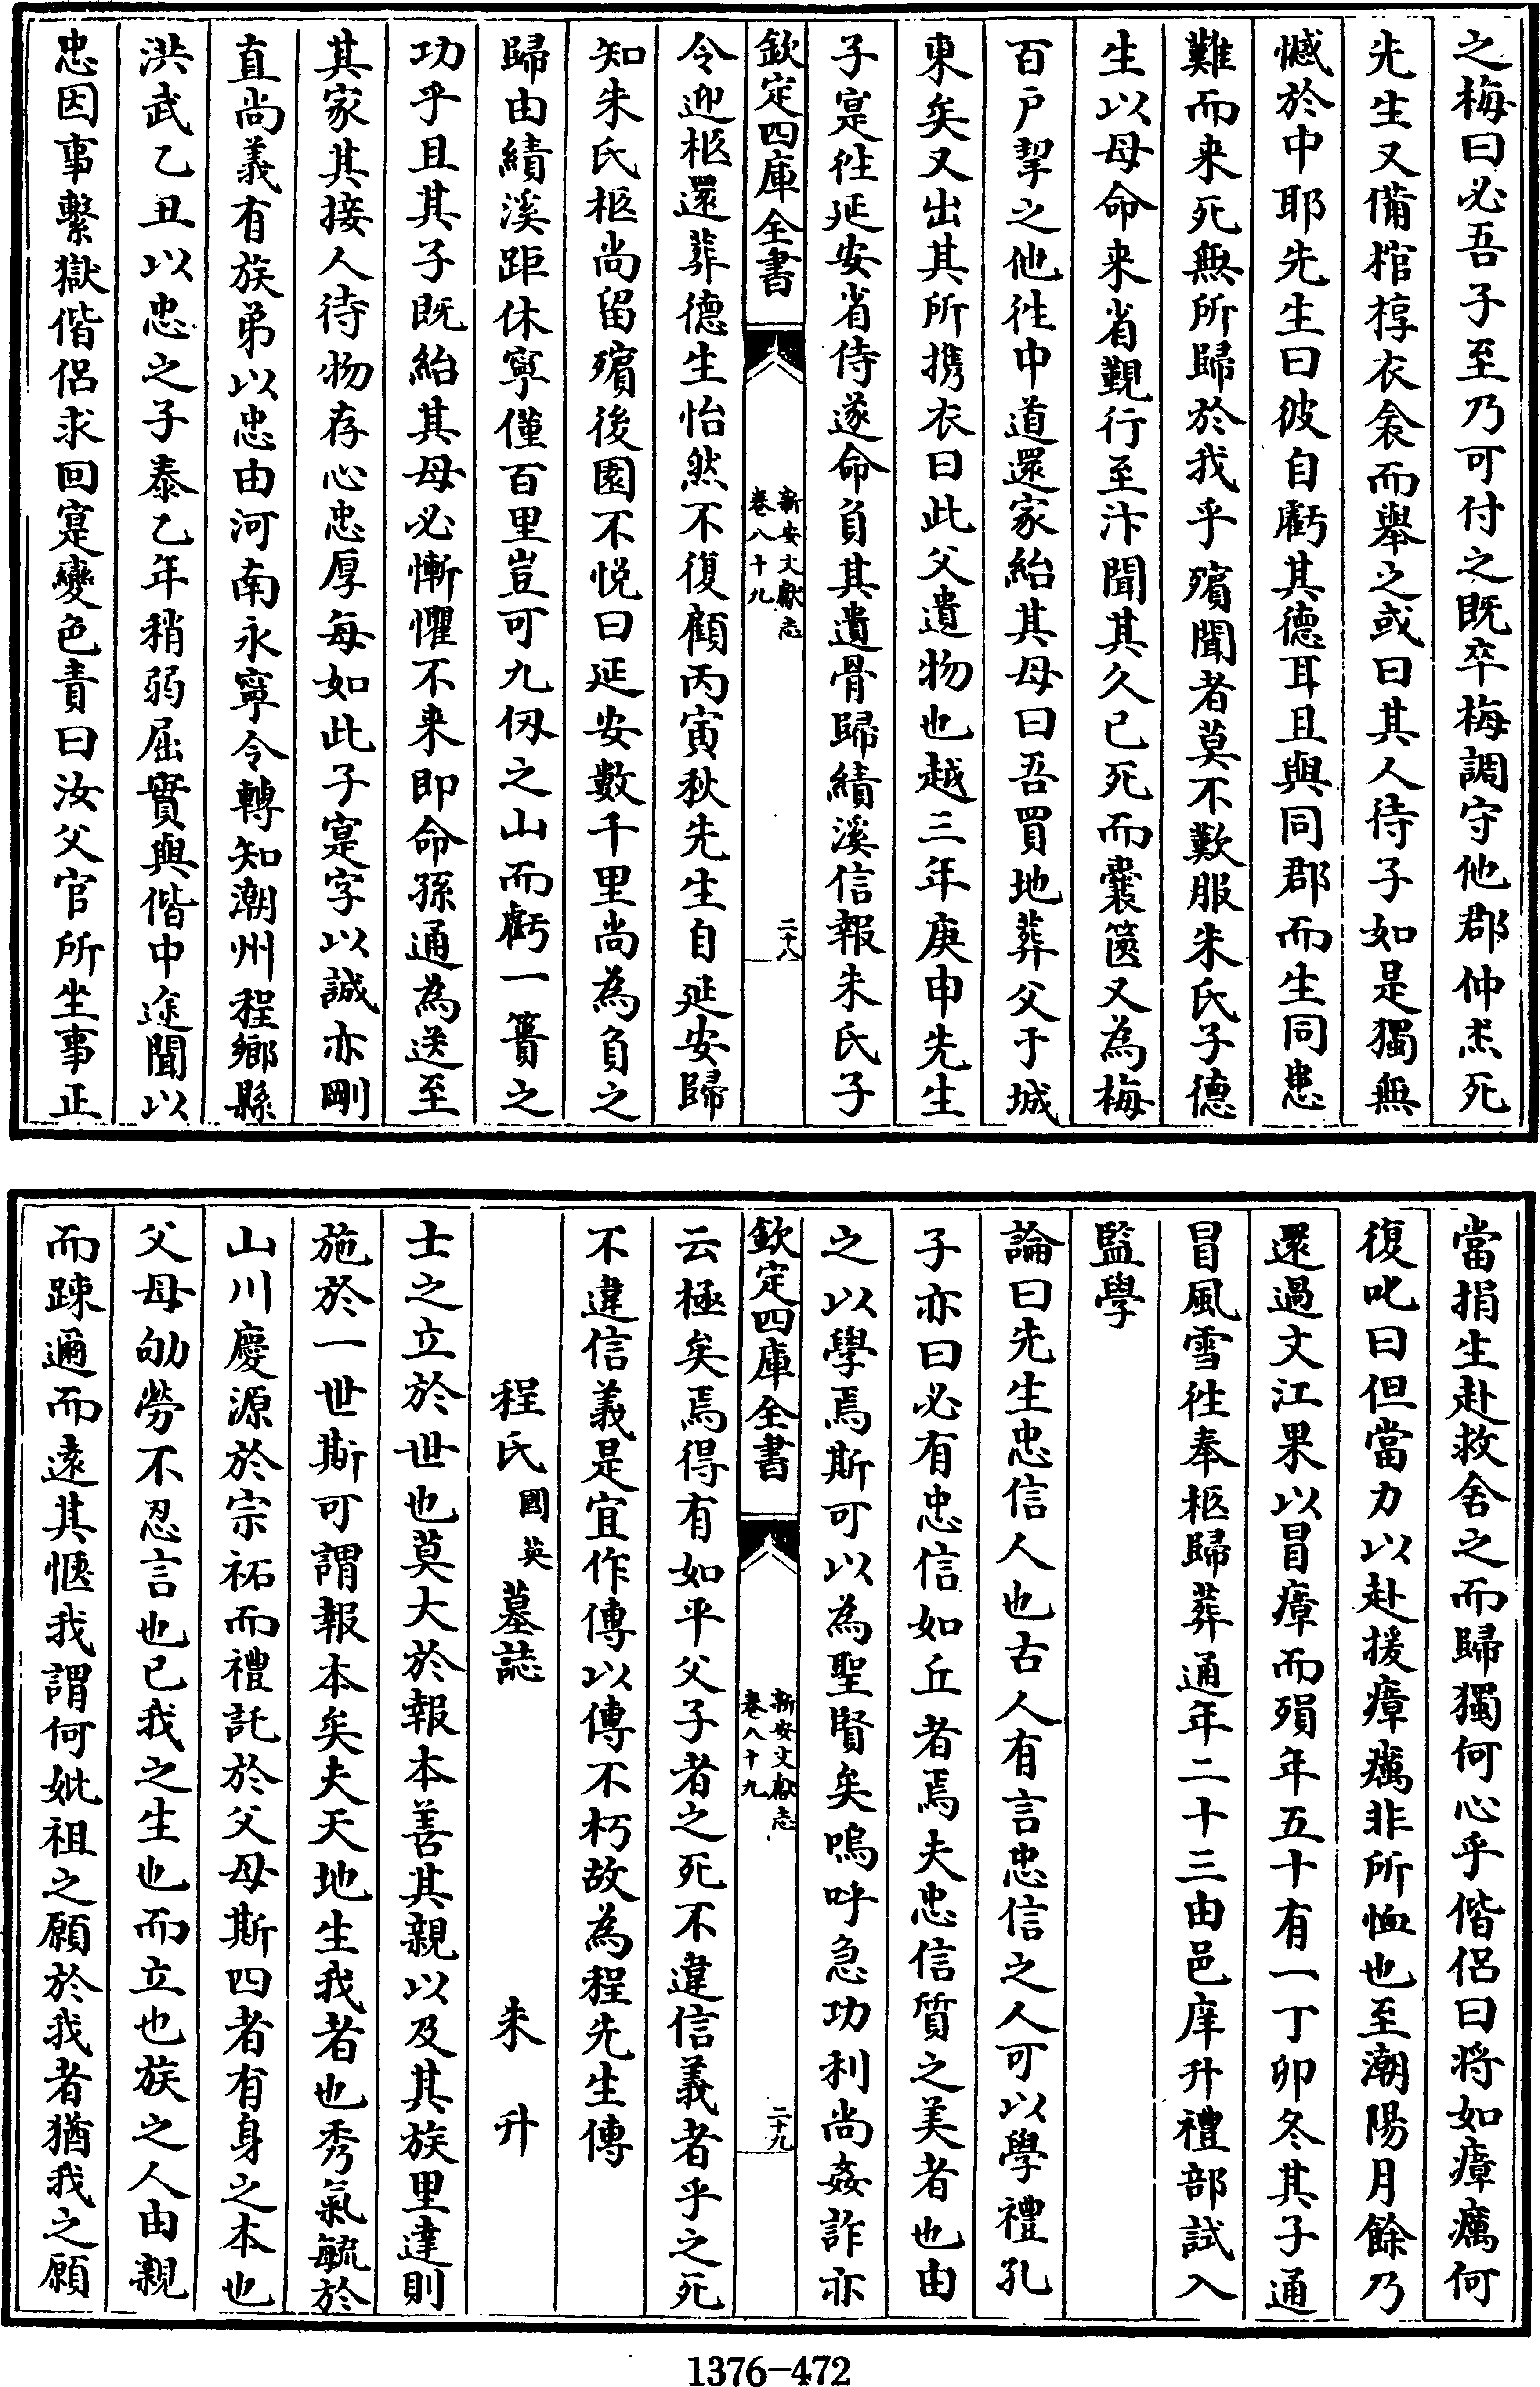 之梅曰必吾子至乃可付之既卒梅調守他郡仲杰死
先生又備棺椁衣衾而舉之或曰其人待子如是獨無
憾於中耶先生曰彼自虧其德耳且與同郡而生同患
難而来死無所歸於我乎殯聞者莫不歎服朱氏子德
生以母命来省覲行至汴聞其久已死而囊篋又為梅
百户挈之他徃中道還家紿其母曰吾買地葬父于城
東矣又出其所攜衣曰此父遺物也越三年庚申先生
子寔徃延安省侍遂命負其遺骨歸績溪信報朱氏子
欽定四庫全書
新安文獻志
卷八十九
二十八
令迎柩還葬德生怡然不復顧丙寅秋先生自延安歸
知朱氏柩尚留殯後園不悦曰延安數千里尚為負之
歸由績溪距休寧僅百里豈可九仭之山而虧一簣之
功乎且其子既紿其母必慚懼不来即命孫通為送至
其家其接人待物存心忠厚每如此子寔字以誠亦剛
直尚義有族弟以忠由河南永寧令轉知潮州程鄉縣
洪武乙丑以忠之子泰乙年稍弱屈實與偕中途聞以
忠因事繫獄偕侣求回寔變色責曰汝父官所坐事正
當捐生赴救舍之而歸獨何心乎偕侣曰将如瘴癘何
復叱曰但當力以赴援瘴癘非所恤也至潮陽月餘乃
還過文江果以冒瘴而殞年五十有一丁卯冬其子通
冒風雪徃奉柩歸葬通年二十三由邑庠升禮部試入
監學
論曰先生忠信人也古人有言忠信之人可以學禮孔
子亦曰必有忠信如丘者焉夫忠信質之美者也由
之以學焉斯可以為聖賢矣嗚呼急功利尚姦詐亦
欽定四庫全書
新安文獻志
卷八十九
二十九
云極矣焉得有如平父子者之死不違信義者乎之死
不違信義是宜作傳以傳不朽故為程先生傳
程氏國英墓誌 朱升
士之立於世也莫大於報本善其親以及其族里達則
施於一世斯可謂報本矣夫天地生我者也秀氣毓於
山川慶源於宗祏而禮託於父母斯四者有身之本也
父母劬勞不忍言也已我之生也而立也族之人由親
而踈邇而遠其愜我謂何妣祖之願於我者猶我之願
1376-472